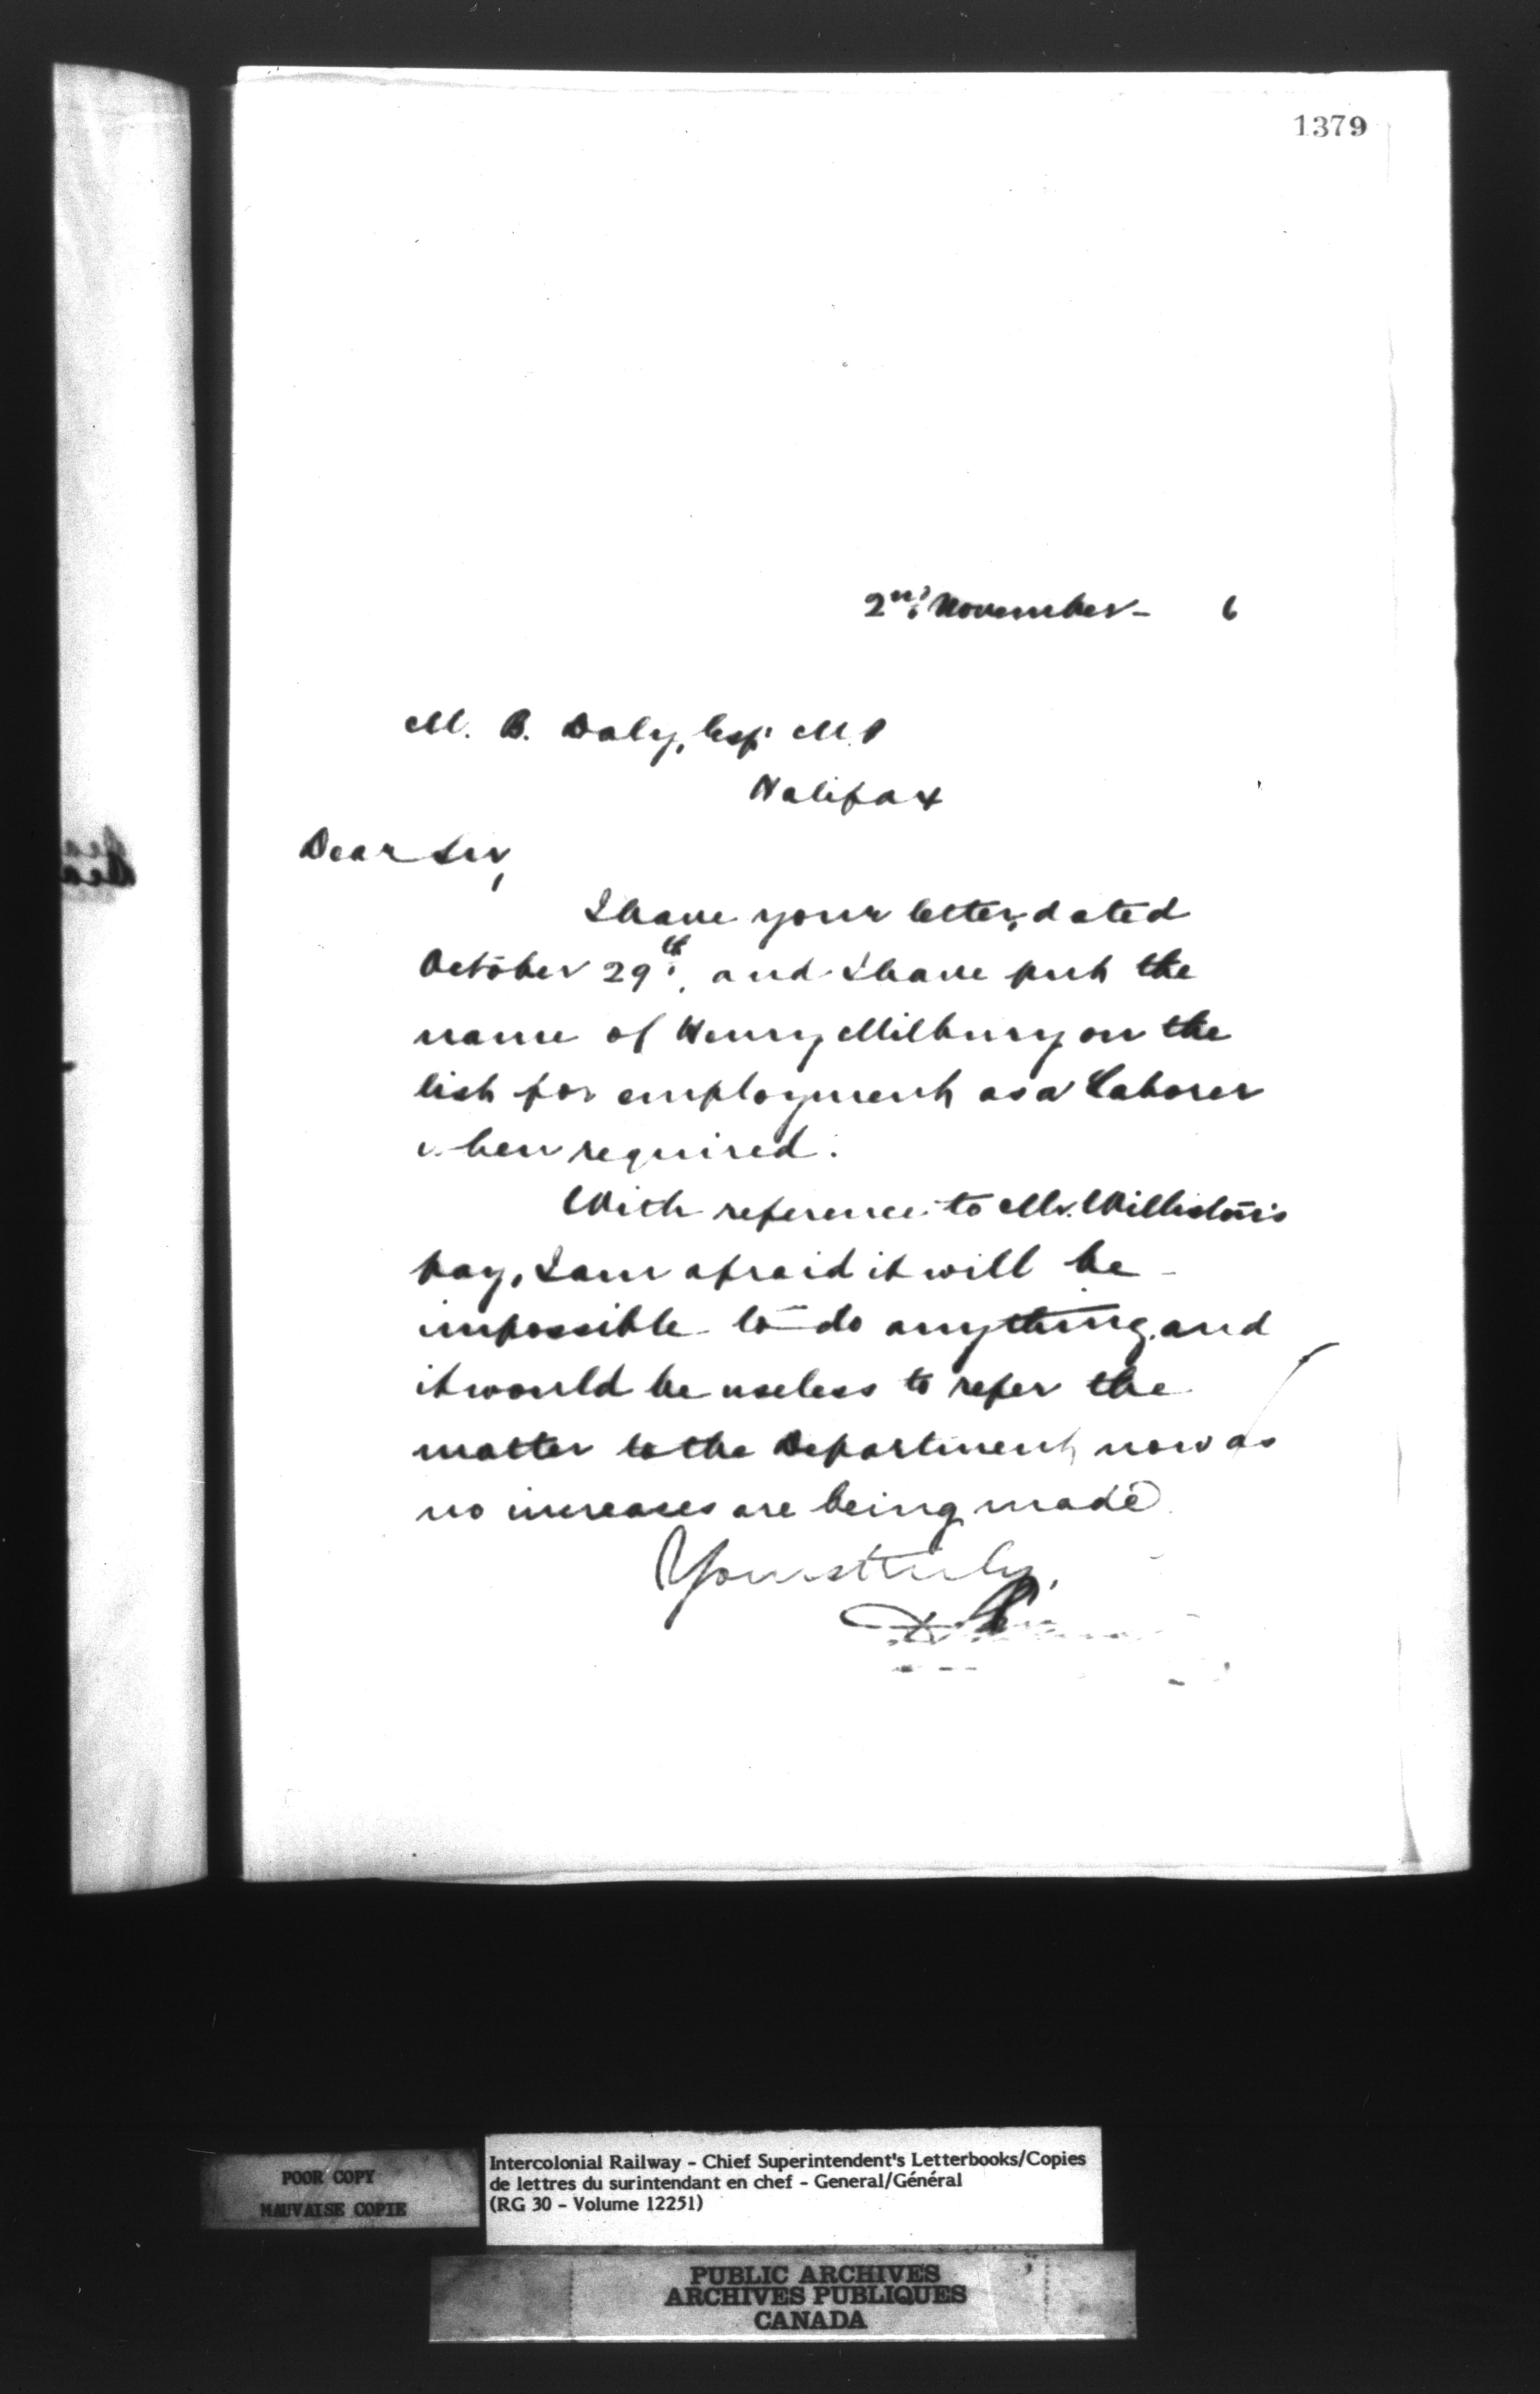 1379
2nd November - 6
M. B. Daly, Esq. M.P
Halifax
Dear Sir,
I have your letter, dated
October 29th, and I have put the
name of Henry Milbury on the
list for employment as a Laborer
when required.
With reference to Mr. Williston's
pay, I am afraid it will be
impossible to do anything, and
it would be useless to refer the
matter to the Department now as
no increases are being made
Yours truly,
POOR COPY
MAUVAISE COPIE
Intercolonial Railway - Chief Superintendent's Letterbooks/Copies
de lettres du surintendant en chef - General/Général
(RG 30 - Volume 12251)
PUBLIC ARCHIVES
ARCHIVES PUBLIQUES
CANADA